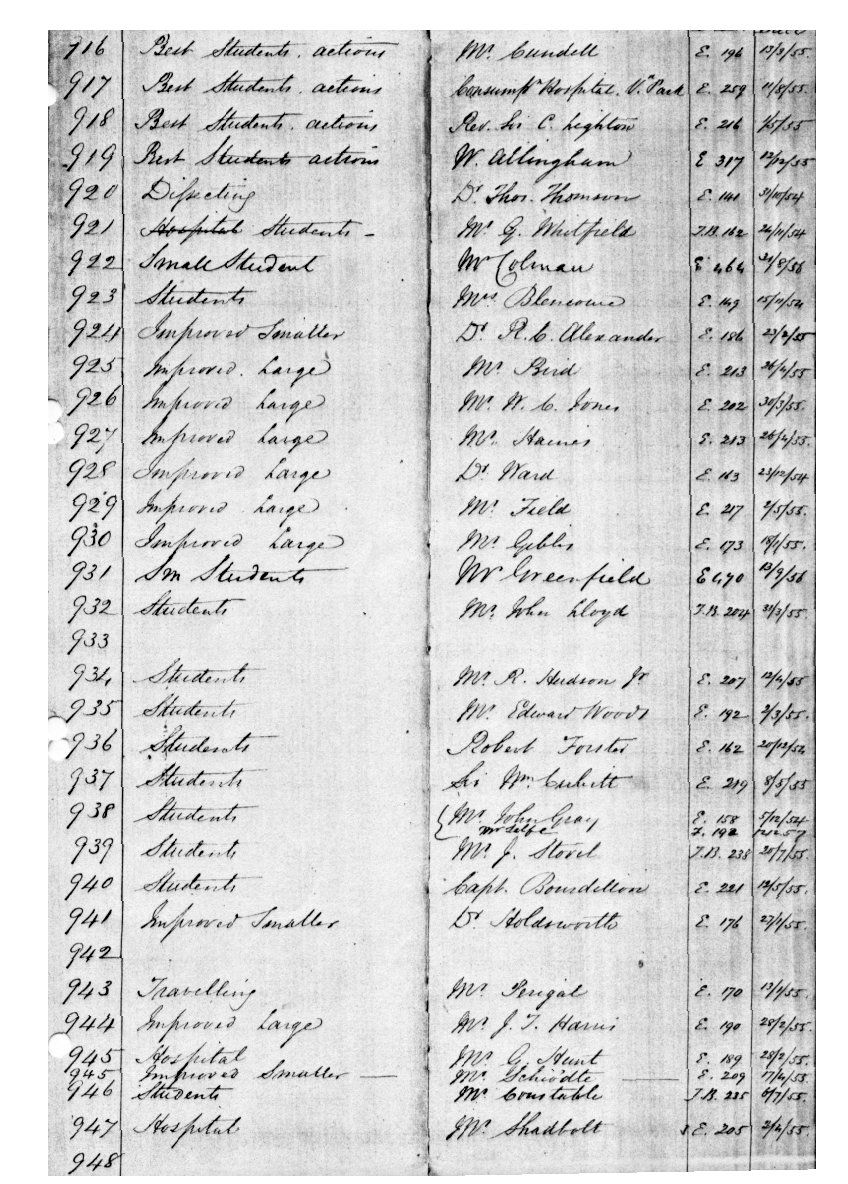 Date
716 Best Students. actions Mr. Cundell E. 196 13/3/55.
917 Best Students. actions Consumpn Hospital. Va Park E. 259 11/8/55.
918 Best Students. actions Rev. Sir C. Leighton E. 216 1/5/55
919 Best Students actions W. Allingham E 317 12/12/55
920 Dissecting Dr Thos. Thomson E. 141 31/10/54
921 Hospital Students - Mr G. Whitfield T.B. 162 24/11/54
922 Small Student Mr Colman E 464 /8/56
923 Students Mrs E. 149 15/11/54
924 Improved Smaller Dr R. C. Alexander E. 186 23/2/55
925 Improved. Large Mr. Bird E. 213 26/4/55
926 Improved Large Mr. W. C. Jones E. 202 30/3/55.
927 Improved Large Mr. Haines E. 213 26/4/55.
928 Improved Large Dr. Ward E. 163 23/12/54
929 Improved Large Mr. Field E. 217 2/5/55.
930 Improved Large Mr. Gibbs E. 173 18/1/55.
931 Sm Students Mr Greenfield E 470 13/9/56
932 Students Mr. John Lloyd T.B. 204 31/3/55.
933
934 Students Mr. R. Hudson Jr E. 207 12/4/55
935 Students Mr. Edward Woods E. 192 2/3/55.
936 Students Robert Forster E. 162 20/12/54
937 Students Sir Wm Cubitt E. 219 8/5/55
938 Students Mr. John Gray E. 158 5/12/54
Mr Selfe 192
939 Students Mr. J. Stovel T.B. 238 25/7/55.
940 Students Capt. Bourdillon E. 221 12/5/55.
941 Improved Smaller Dr Holdsworth E. 176 27/1/55.
942
943 Travelling Mr. Perigal E. 170 13/1/55.
944 Improved Large Mr. J. T. Harris E. 190 28/2/55.
945 Hospital Mr. G. Hunt E. 189 28/2/55.
945 Improved Smaller — Mr. Schiödte — E. 209 17/4/55.
946 Students Mr. Constable T.B. 235 6/7/55.
947 Hospital Mr. Shadbolt E. 205 2/4/55.
948